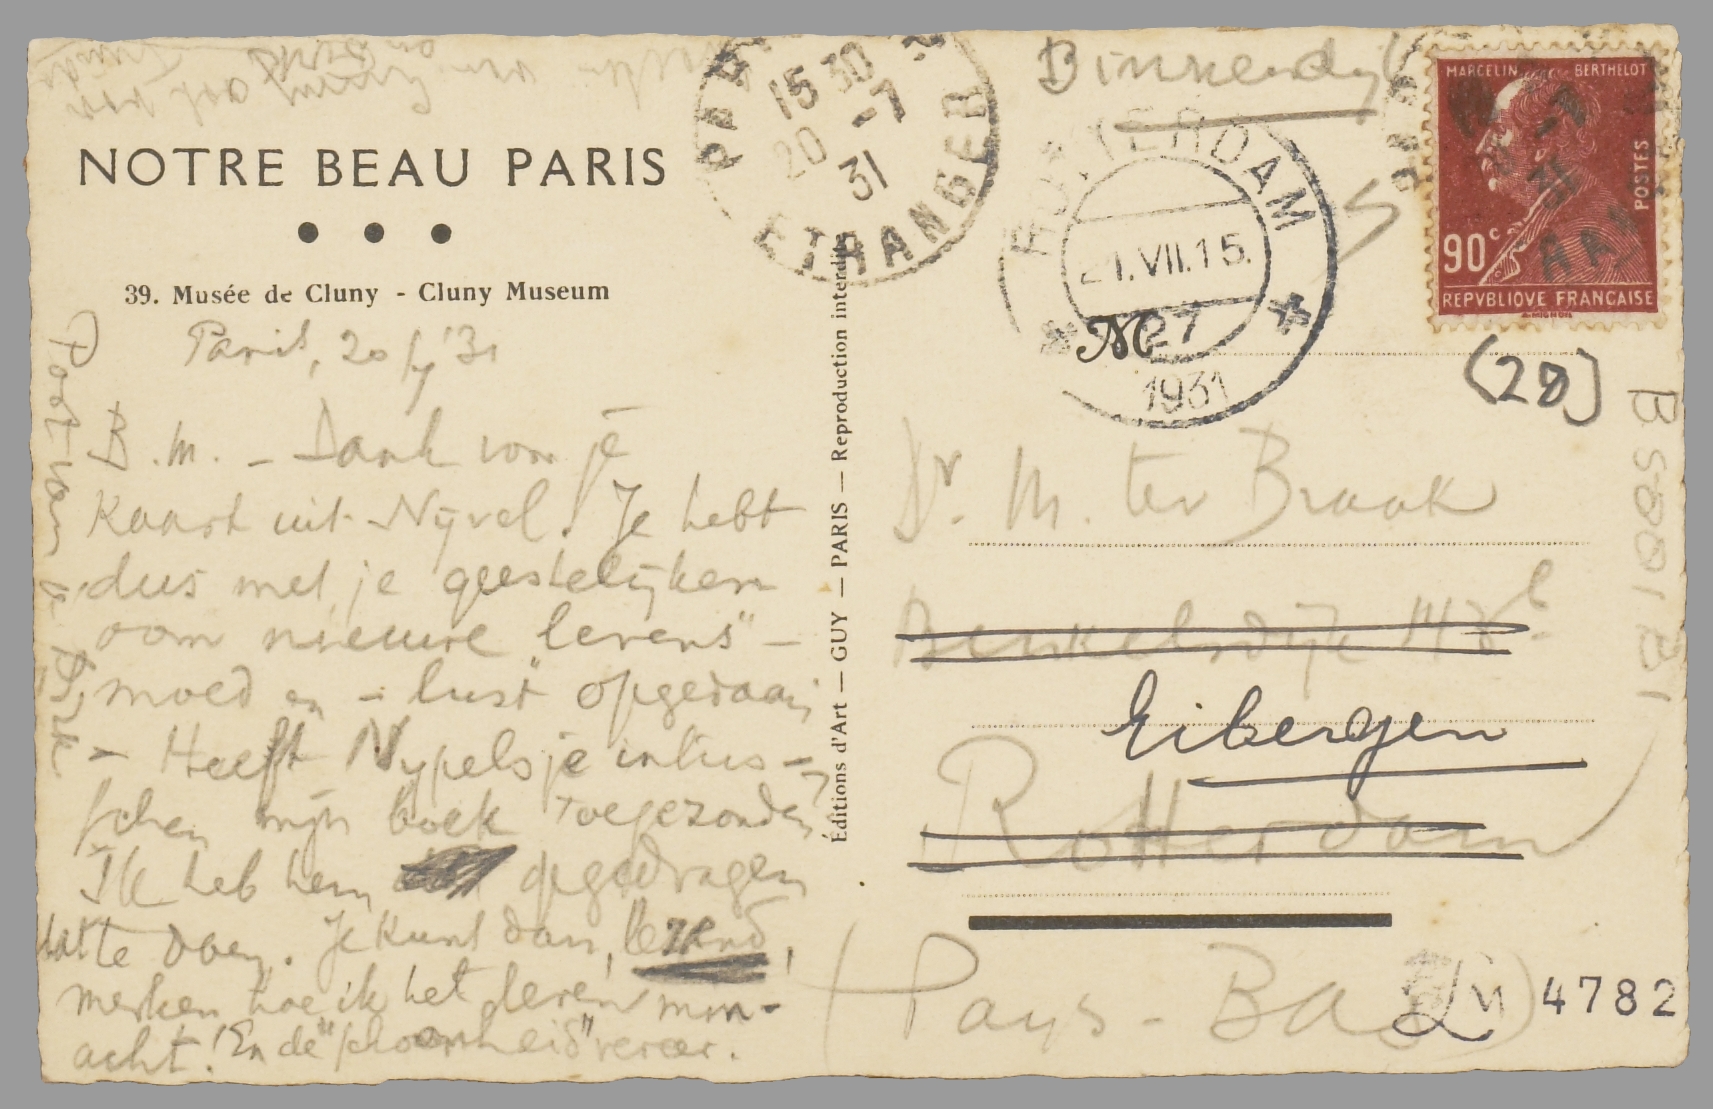 NOTRE BEAU PARIS
39. Musée de Cluny - Cluny Museum
Paris, 20/7 '31
B.M. - Dank voor je
kaart uit Nijvel. Je hebt
dus met je geestelijken
oom nieuwe "levens" -
moed en - lust opgedaan
- Heeft Nypels je intus-
schen mijn boek toegezonden,
Ik heb hem opgedragen
dat te doen. Je kunt dan, lezend,
merken hoe ik het leven min-
acht! En de "schoonheid" vereer.
Post van d. Dirk
Éditions d'Art — GUY — PARIS — Reproduction interdite
PARIS
15 30
20 -7
31
ETRANGER
Binnendijk
ROTTERDAM
21.VII.15.
N27
1931
MARCELIN BERTHELOT
POSTES
90c
REPVBLIQVE FRANÇAISE
(28)
Dr. M. ter Braak
Beukelsdijk 143b
Eibergen
Rotterdam
(Pays-Bas)
LM 4782
B 5001 B1